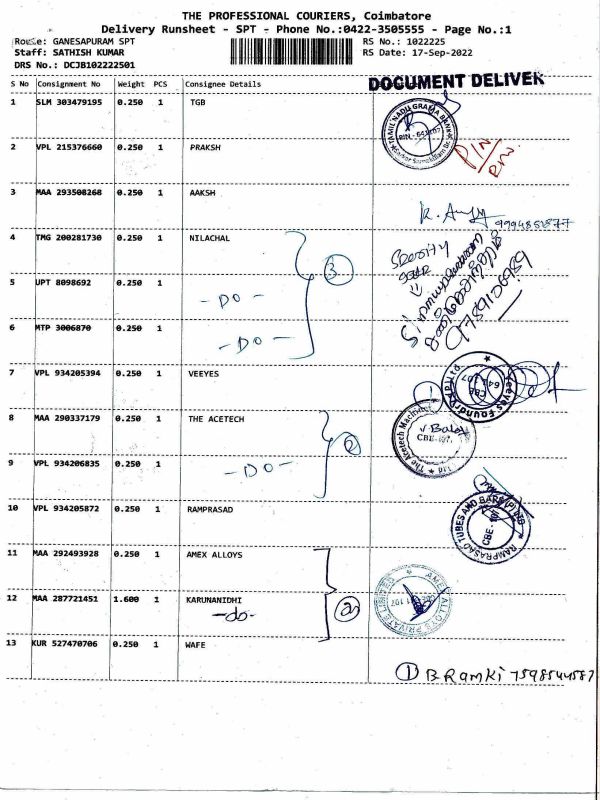 THE PROFESSIONAL COURIERS, Coimbatore
Delivery Runsheet - SPT - Phone No.:0422-3505555 - Page No.:1
Route: GANESAPURAM SPT RS No.: 1022225
Staff: SATHISH KUMAR RS Date: 17-Sep-2022
DRS No.: DCJB102222501
DOCUMENT DELIVER
S No Consignment No Weight PCS Consignee Details
1 SLM 303479195 0.250 1 TGB
TAMIL NADU GRAMA BANK
PIN - 641107
PIN
2 VPL 215376660 0.250 1 PRAKSH
3 MAA 293508268 0.250 1 AAKSH
4 TMG 200281730 0.250 1 NILACHAL
3
5 UPT 8098692 0.250 1
- DO -
6 MTP 3006870 0.250 1
- DO -
7 VPL 934205394 0.250 1 VEEYES
1
Veeyes Foundry (P) Ltd
CBE
641 107
8 MAA 290337179 0.250 1 THE ACETECH
2
The Acetech Machinery Ltd
CBE-107.
9 VPL 934206835 0.250 1
- DO -
10 VPL 934205872 0.250 1 RAMPRASAD
RAMPRASAD TUBES AND BARS (P) LTD
CBE - 107
11 MAA 292493928 0.250 1 AMEX ALLOYS
2
AMEX ALLOYS PRIVATE LIMITED
12 MAA 287721451 1.600 1 KARUNANIDHI
- do -
13 KUR 527470706 0.250 1 WAFE
1 B RAMKI 7598544587